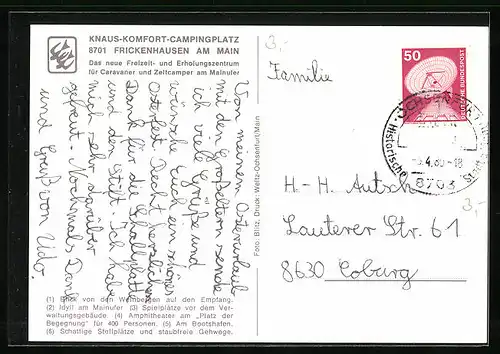 KNAUS-KOMFORT-CAMPINGPLATZ
8701 FRICKENHAUSEN AM MAIN
Das neue Freizeit- und Erholungszentrum
für Caravaner und Zeltcamper am Mainufer
Von meinem Osterurlaub
mit den Großeltern sende
ich viele Grüße und
wünsche Euch ein schönes
Osterfest. Recht herzlichen
Dank für die Schallplatte
und den Stift. Ich habe
mich sehr darüber
gefreut. Nochmals Dank
und Grüße von Udo.
(1) Blick von den Weinbergen auf den Empfang.
(2) Idyll am Mainufer (3) Spielplätze vor dem Ver-
waltungsgebäude. (4) Amphitheater am „Platz der
Begegnung" für 400 Personen. (5) Am Bootshafen.
(6) Schattige Stellplätze und staubfreie Gehwege.
Foto: Blitz, Druck: Weltz-Ochsenfurt/Main
3,-
Familie
H-H. Autsch
Lauterer Str. 61
8630 Coburg
50
DEUTSCHE BUNDESPOST
Historische
4.80-18
8703
3,-